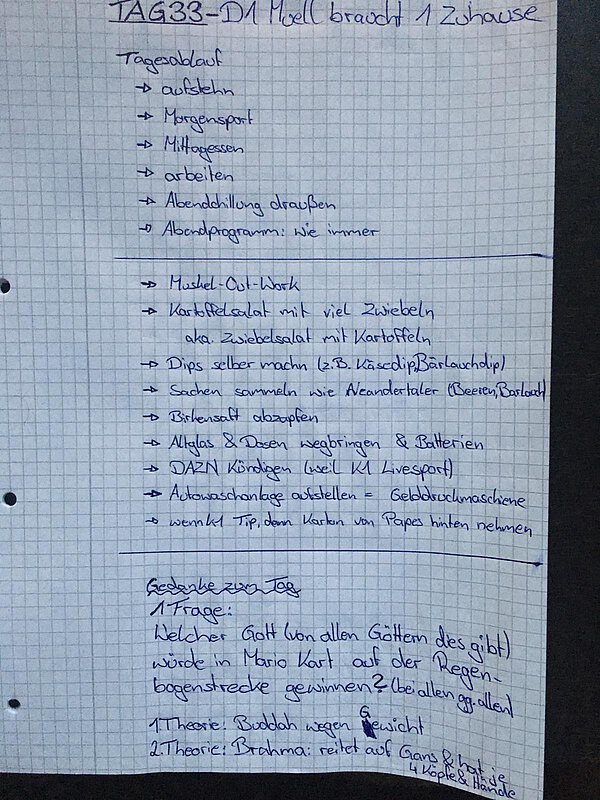 TAG33-D1 Müll braucht 1 Zuhause
Tagesablauf
→ aufstehn
→ Morgensport
→ Mittagessen
→ arbeiten
→ Abendchillung draußen
→ Abendprogramm: wie immer
→ Muskel-Out-Work
→ Kartoffelsalat mit viel Zwiebeln
aka. Zwiebelsalat mit Kartoffeln
→ Dips selber machn (z.B. Käsedip, Bärlauchdip)
→ Sachen sammeln wie Neandertaler (Beeren, Bärlauch)
→ Birkensaft abzapfen
→ Altglas & Dosen wegbringen & Batterien
→ DAZN Kündigen (weil K1 Livesport)
→ Autowaschanlage aufstellen = Gelddruckmaschiene
→ wenn K1 Tip, dann Karton von Papes hinten nehmen
Gedanke zum Tag
1 Frage:
Welcher Gott (von allen Göttern dies gibt)
würde in Mario Kart auf der Regen-
bogenstrecke gewinnen? (bei allen gg. allen)
1. Theorie: Buddah wegen Gewicht
2. Theorie: Brahma: reitet auf Gans & hat je
4 Köpfe & Hände